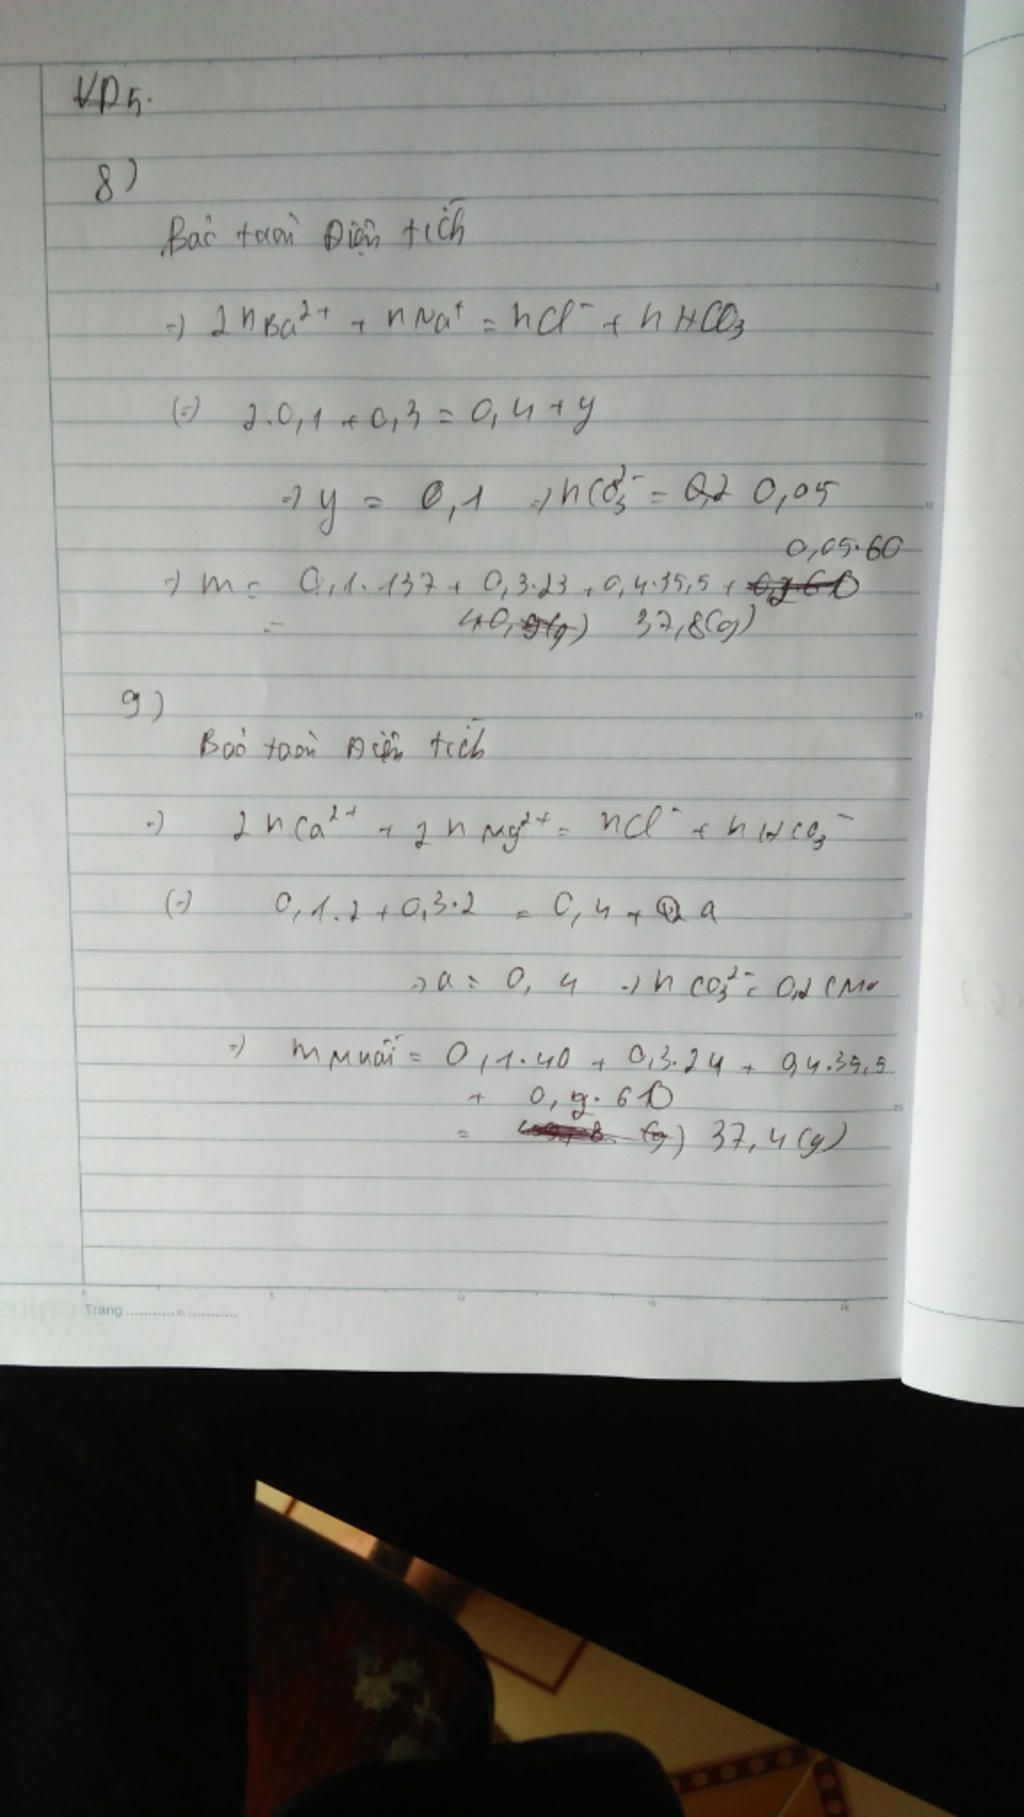 VD5.
8)
Bảo toàn Điện tích
=) 2nBa²⁺ + nNa⁺ = nCl⁻ + nHCO₃
(=) 2.0,1 + 0,3 = 0,4 + y
=) y = 0,1 =) nCO₃²⁻ = 0,05
0,05.60
=) m = 0,1.137 + 0,3.23 + 0,4.35,5 +
= 37,8(g)
9)
Bảo toàn Điện tích
=) 2nCa²⁺ + 2nMg²⁺ = nCl⁻ + nHCO₃⁻
(=) 0,1.2 + 0,3.2 = 0,4 + a
=) a = 0,4 =) nCO₃²⁻ = 0,2 (Mo
=) m Muối = 0,1.40 + 0,3.24 + 0,4.35,5
+ 0,2.60
= 37,4(g)
Trang